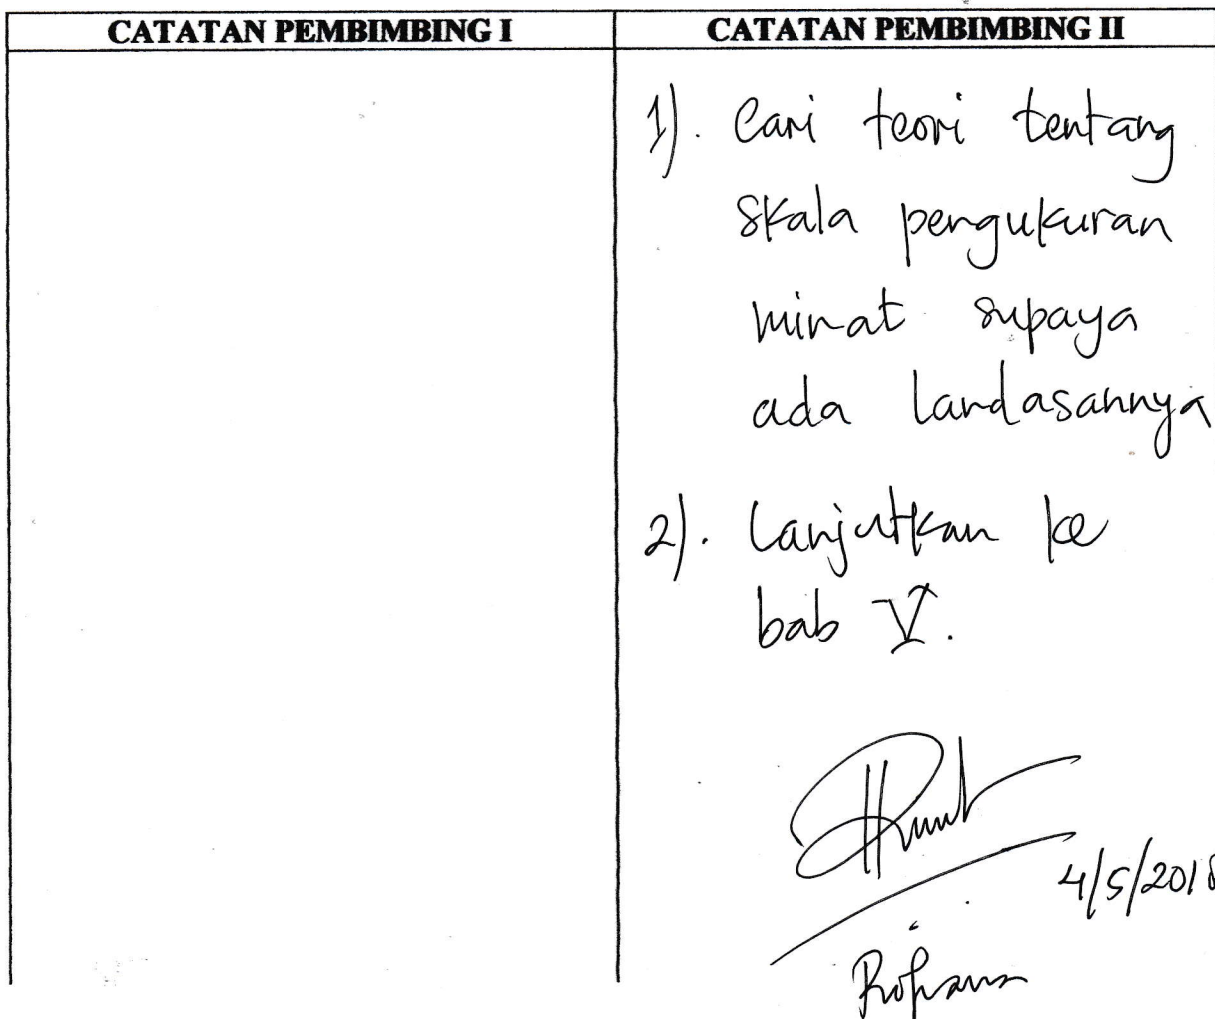 CATATAN PEMBIMBING I
CATATAN PEMBIMBING II
1). Cari teori tentang
skala pengukuran
minat supaya
ada landasannya
2). Lanjutkan ke
bab V.
4/5/2018